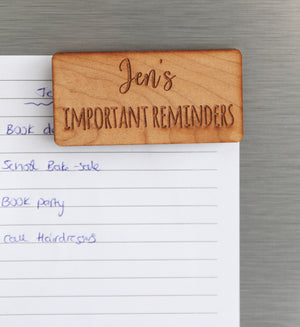 Jen's
IMPORTANT REMINDERS
BOOK
School Bake-sale
BOOK party
Call Hairdressers